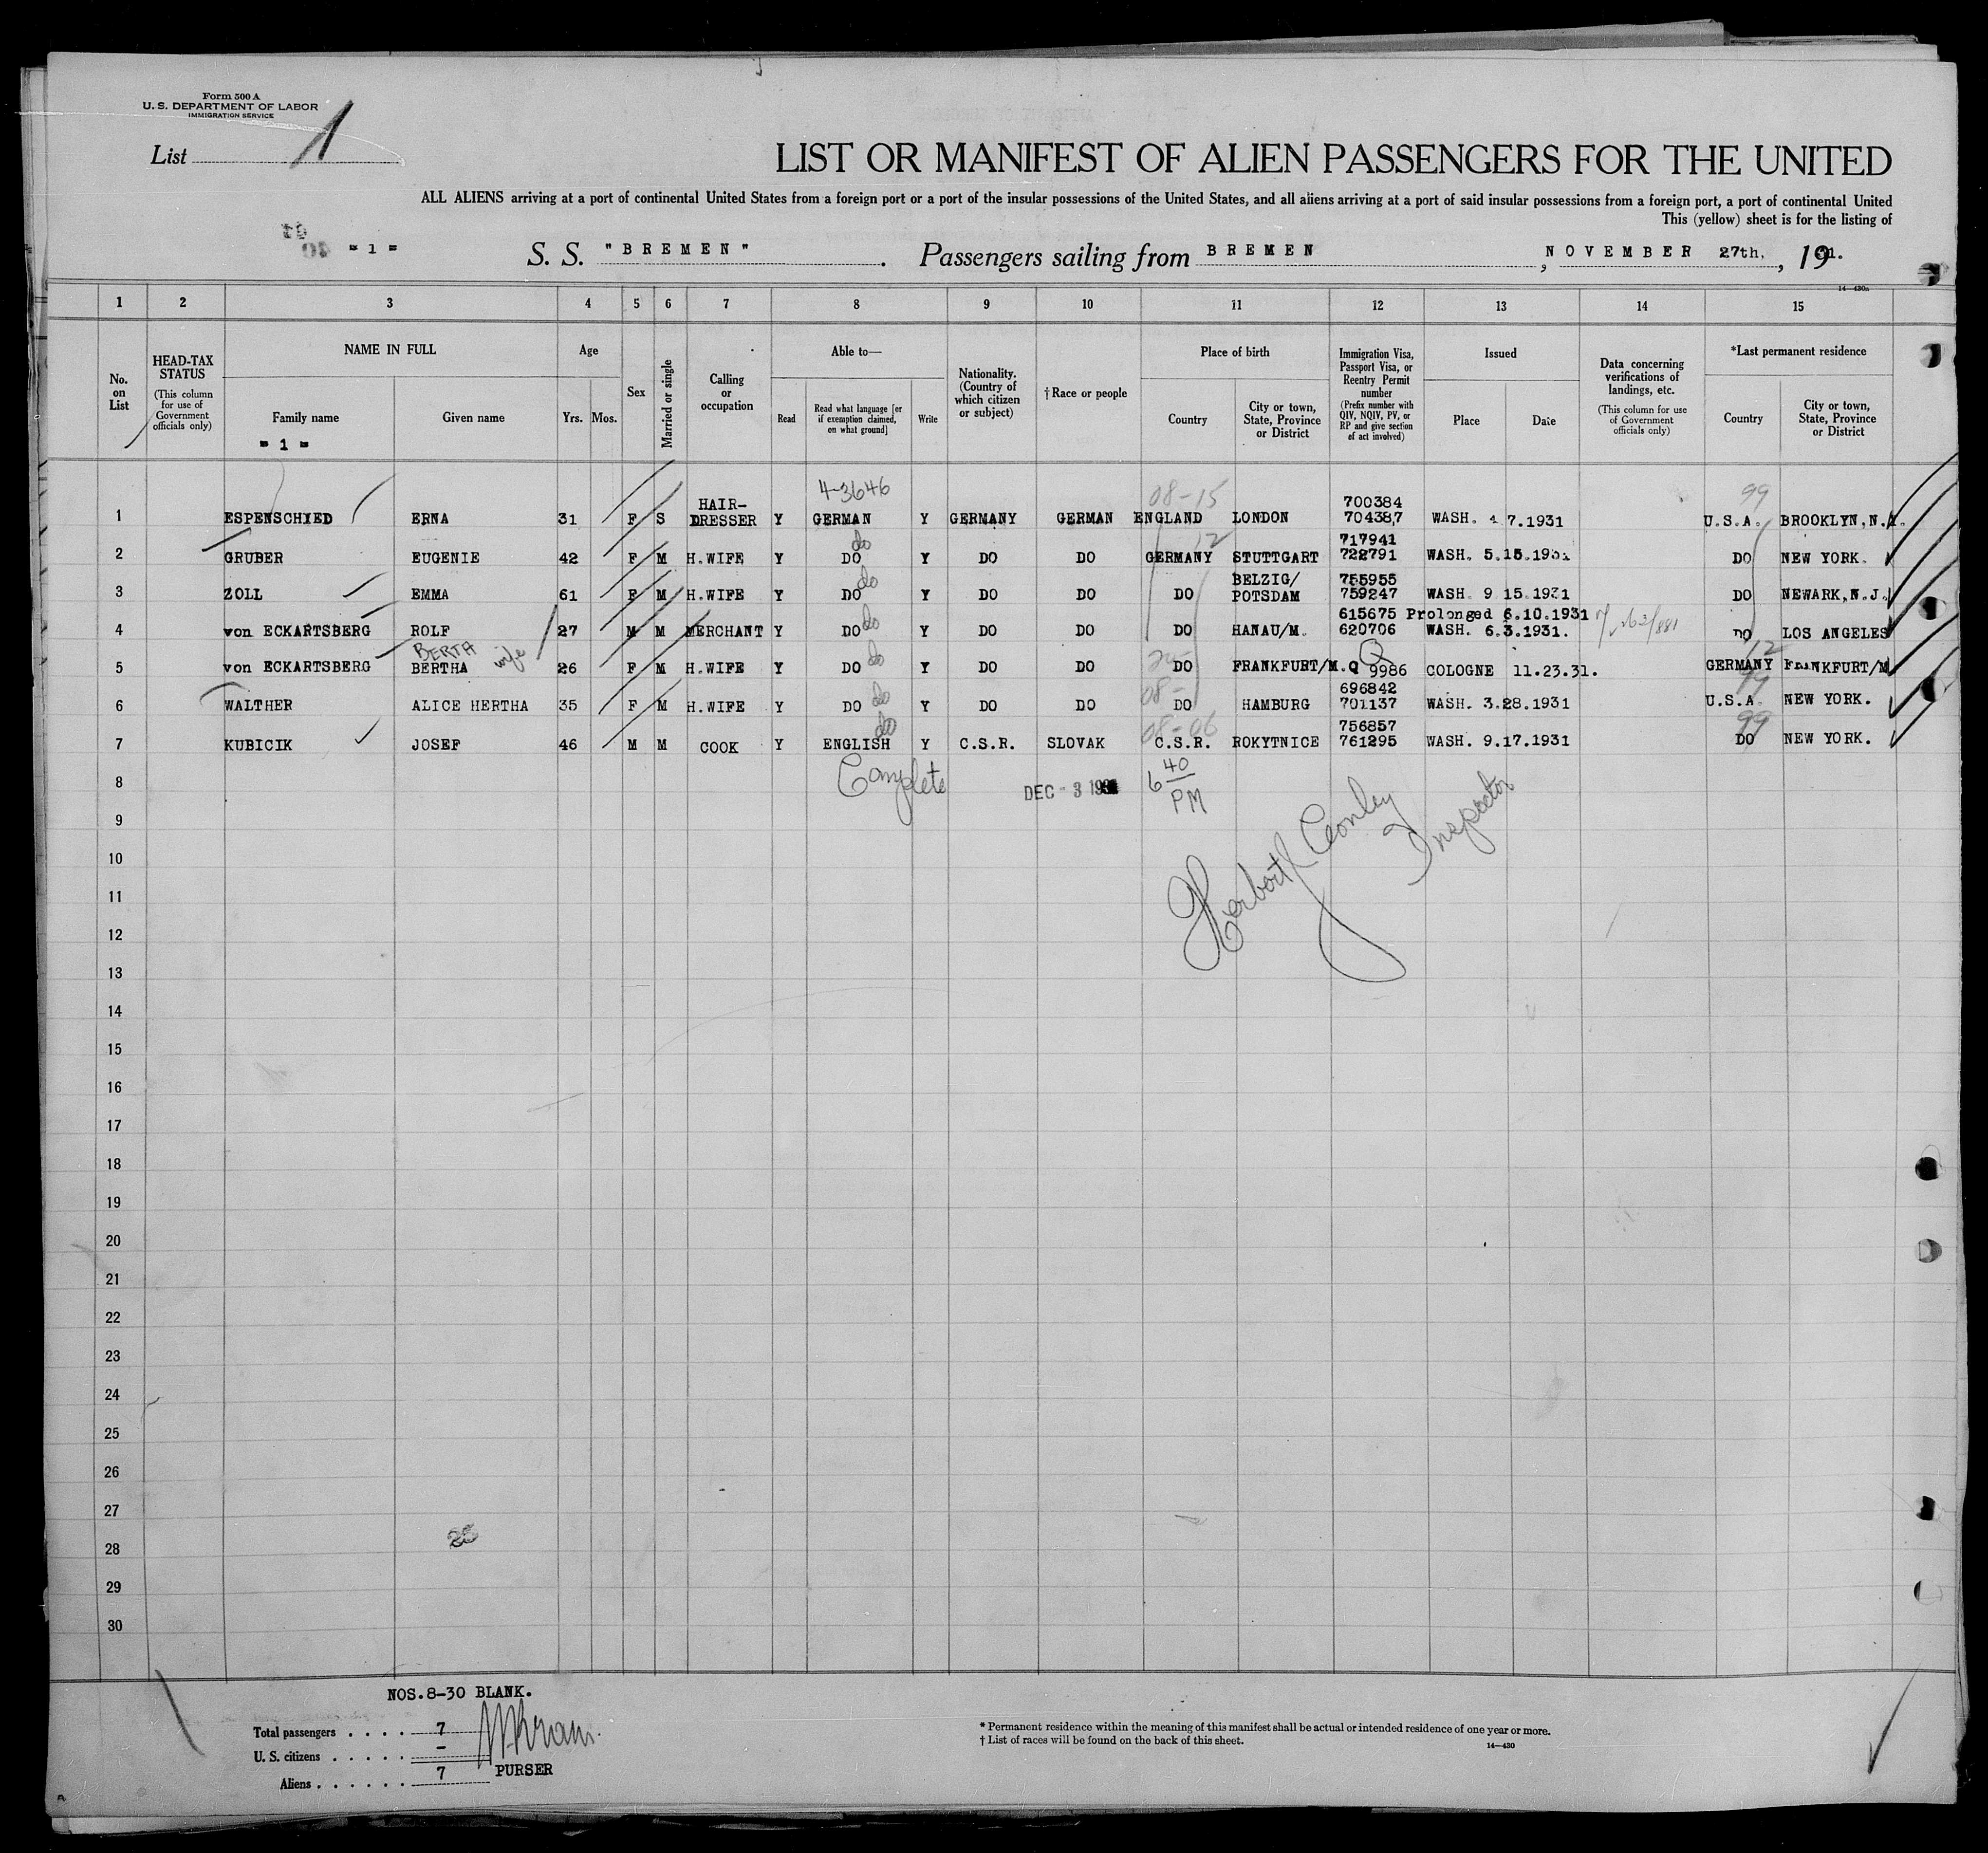 Form 500 A
U. S. DEPARTMENT OF LABOR
IMMIGRATION SERVICE
List 1
LIST OR MANIFEST OF ALIEN PASSENGERS FOR THE UNITED
ALL ALIENS arriving at a port of continental United States from a foreign port or a port of the insular possessions of the United States, and all aliens arriving at a port of said insular possessions from a foreign port, a port of continental United
This (yellow) sheet is for the listing of
- 1 - S. S. "BREMEN". Passengers sailing from BREMEN, NOVEMBER 27th, 1931.
14-430a
1 2 3 4 5 6 7 8 9 10 11 12 13 14 15
No. on List
HEAD-TAX STATUS
(This column for use of Government officials only)
NAME IN FULL
Family name
- 1 -
Given name
Age
Yrs. Mos.
Sex
Married or single
Calling or occupation
Able to—
Read
Read what language [or if exemption claimed, on what ground]
Write
Nationality. (Country of which citizen or subject)
† Race or people
Place of birth
Country
City or town, State, Province or District
Immigration Visa, Passport Visa, or Reentry Permit number
(Prefix number with QIV, NQIV, PV, or RP and give section of act involved)
Issued
Place
Date
Data concerning verifications of landings, etc.
(This column for use of Government officials only)
*Last permanent residence
Country
City or town, State, Province or District
4-3646 08-15 99
1 ESPENSCHIED ERNA 31 F S HAIR-DRESSER Y GERMAN Y GERMANY GERMAN ENGLAND LONDON 700384 704387 WASH. 4 7.1931 U.S.A. BROOKLYN, N.Y.
do 12
2 GRUBER EUGENIE 42 F M H.WIFE Y DO Y DO DO GERMANY STUTTGART 717941 722791 WASH. 5.15.1931 DO NEW YORK.
do
3 ZOLL EMMA 61 F M H.WIFE Y DO Y DO DO DO BELZIG/POTSDAM 755955 759247 WASH. 9 15.1931 DO NEWARK, N.J.
do
4 von ECKARTSBERG ROLF 27 M M MERCHANT Y DO Y DO DO DO HANAU/M. 615675 Prolonged 6.10.1931 620706 WASH. 6.3.1931. DO LOS ANGELES
BERTA wife do Q 12
5 von ECKARTSBERG BERTHA 26 F M H.WIFE Y DO Y DO DO DO FRANKFURT/M. Q 9986 COLOGNE 11.23.31. GERMANY FRANKFURT/M
do 08- 99
6 WALTHER ALICE HERTHA 35 F M H.WIFE Y DO Y DO DO DO HAMBURG 696842 701137 WASH. 3.28.1931 U.S.A. NEW YORK.
do 08-06 99
7 KUBICIK JOSEF 46 M M COOK Y ENGLISH Y C.S.R. SLOVAK C.S.R. ROKYTNICE 756857 761295 WASH. 9.17.1931 DO NEW YORK.
8 Complete DEC - 3 1931 6 40 PM
9
Herbert Conley Inspector
10
11
12
13
14
15
16
17
18
19
20
21
22
23
24
25
26
27
28
29
30
25
NOS.8-30 BLANK.
Total passengers . . . . 7
U. S. citizens . . . . . -
Aliens . . . . . . 7
PURSER
* Permanent residence within the meaning of this manifest shall be actual or intended residence of one year or more.
† List of races will be found on the back of this sheet.
14-430